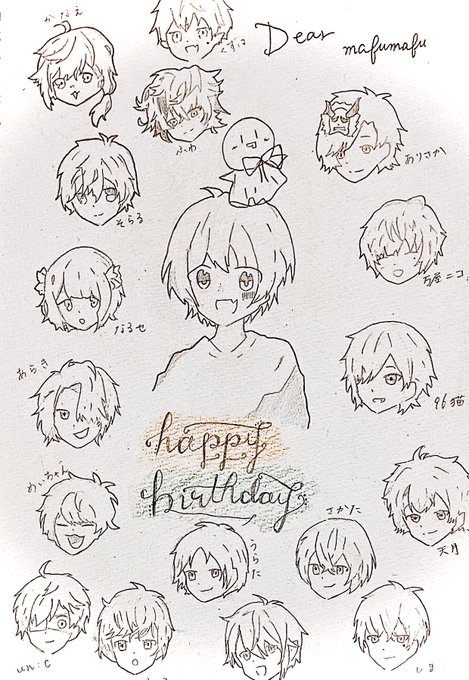 かなえ
くずは
Dear mafumafu
ふわ
ありさか
そらる
百屋ニコ
なるせ
あらき
96猫
happy
birthday
めいちゃん
さかた
うらた
天月
un:c
しま